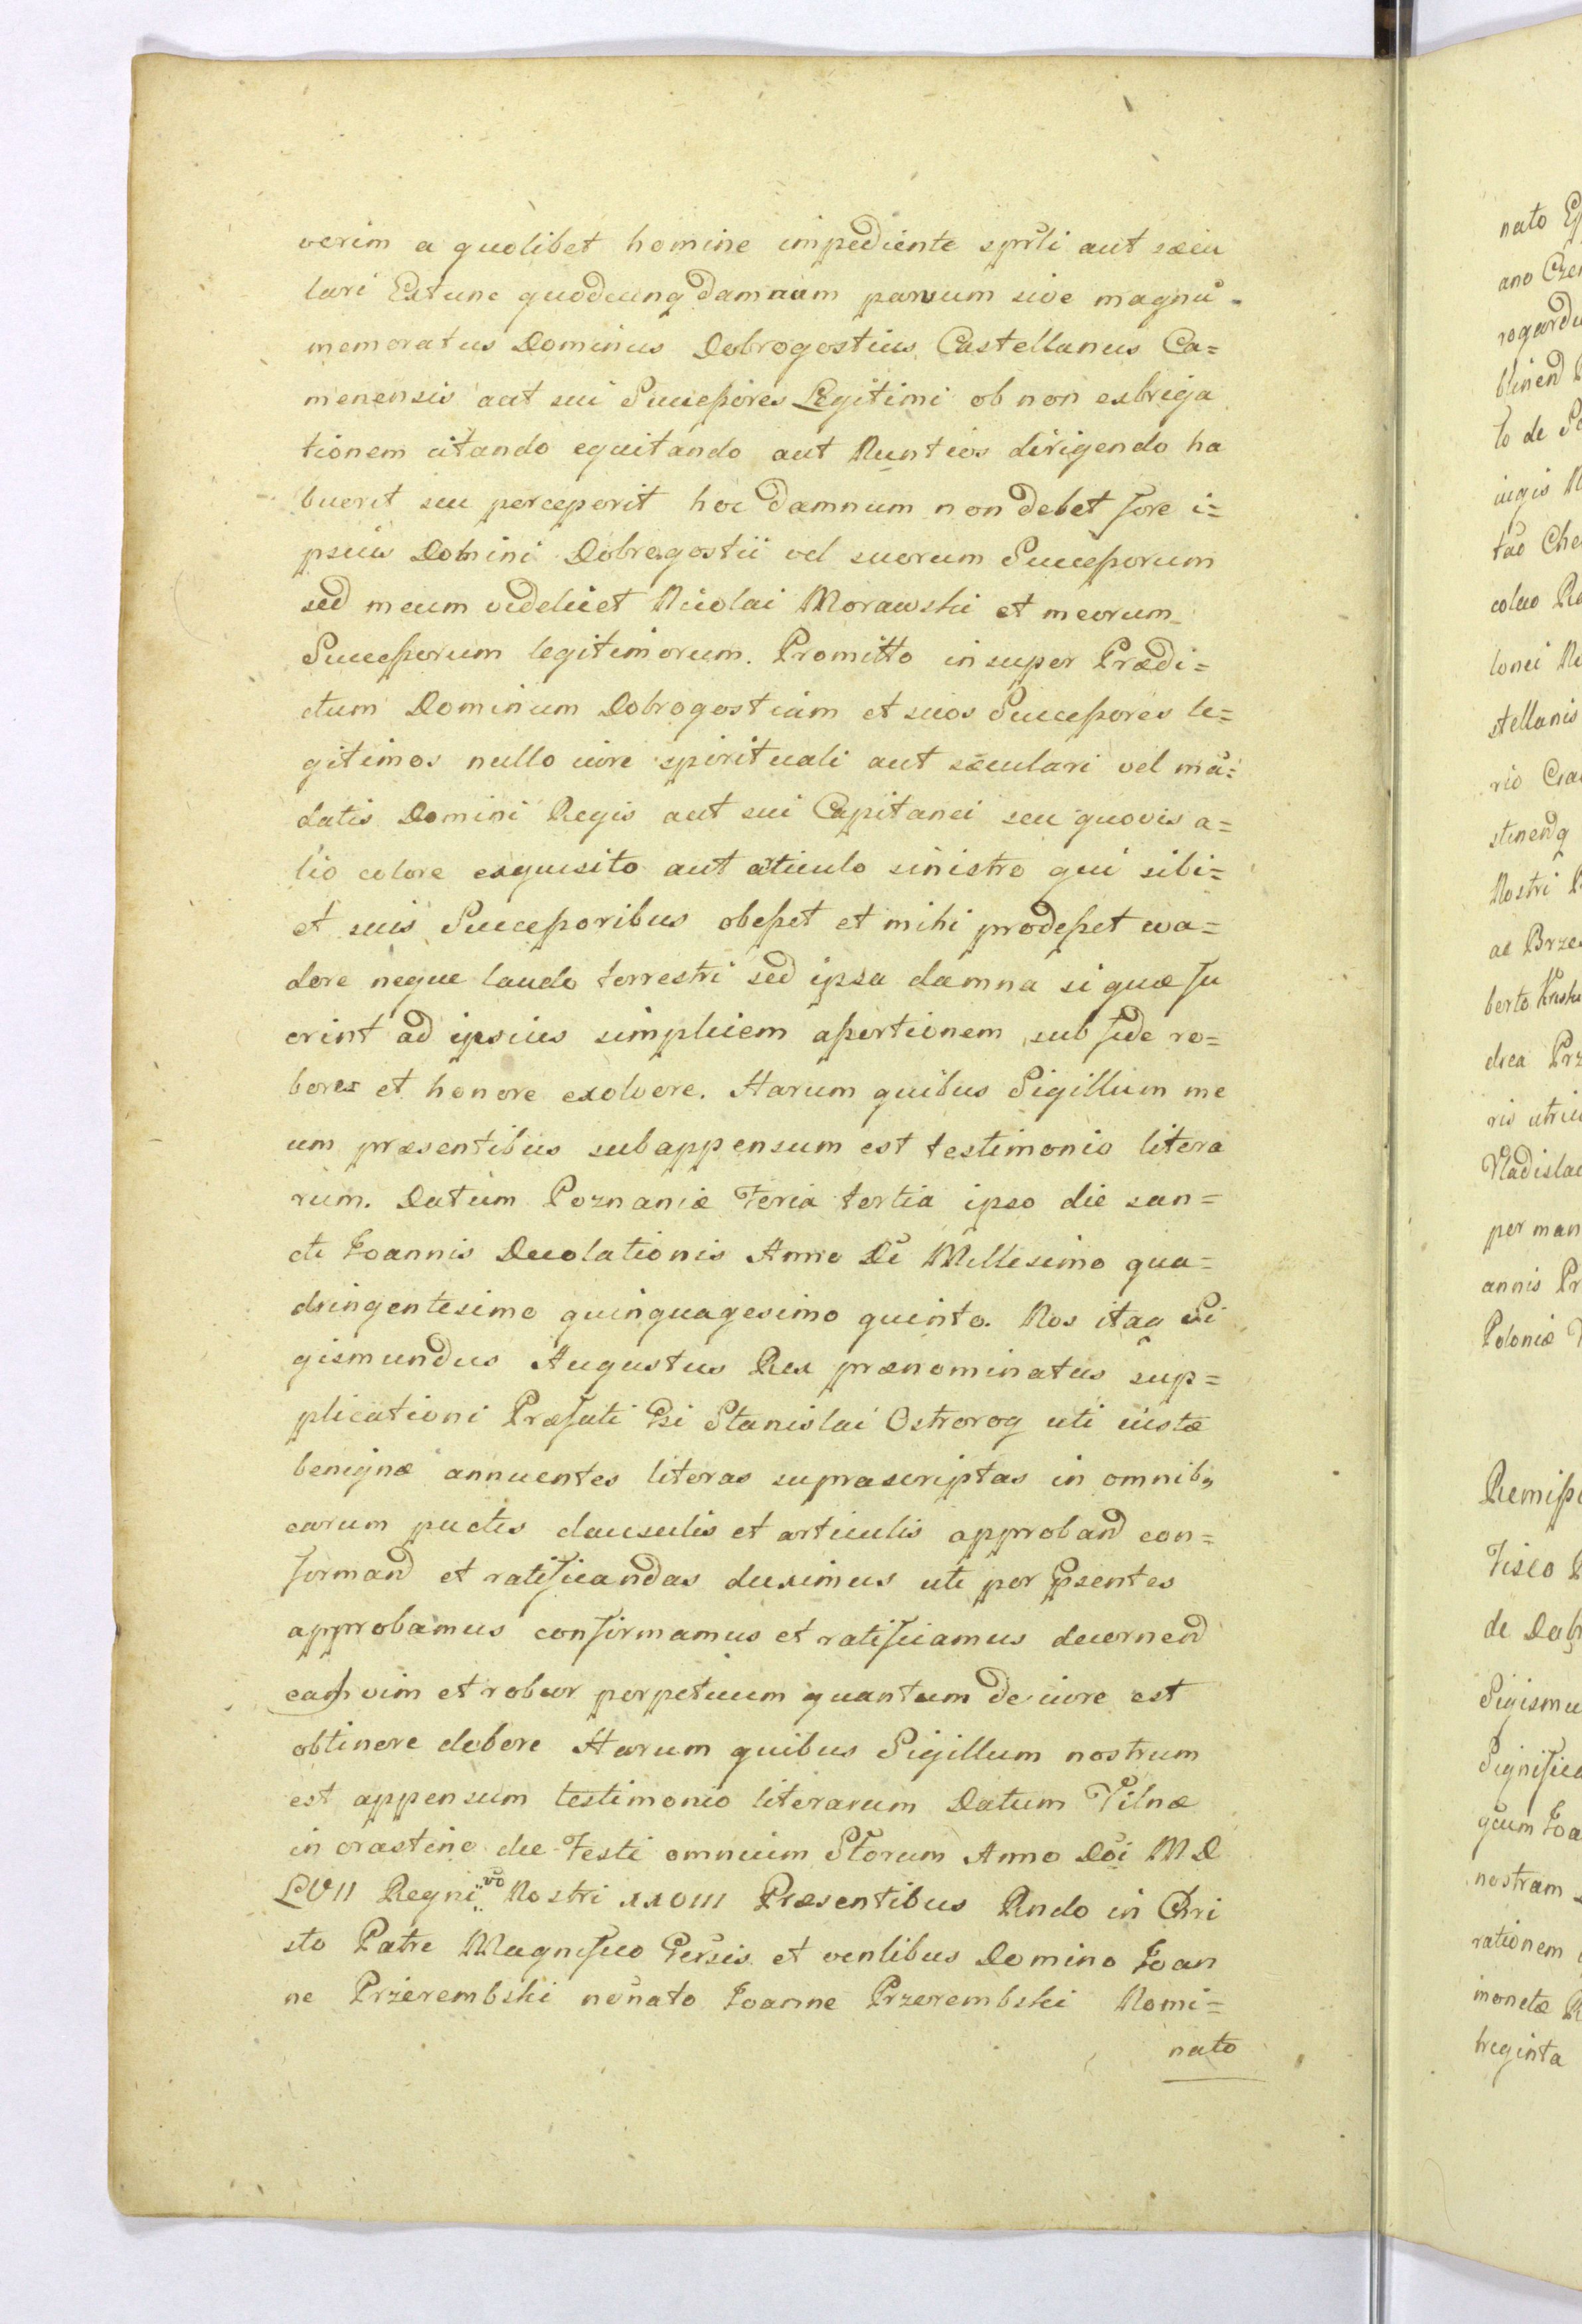 verim a quolibet homine impediente sprli aut sæcu
lari Extunc quodcunq damnum parvum sive magnū
memoratus Dominus Dobrogostius Castellanus Ca=
menensis aut sui Succeſsores Legitimi ob non exbriga
tionem citando equitando aut Nuntios dirigendo ha
buerit seu perceperit hoc damnum non debet fore i=
psius Domini Dobrogostii vel suorum Succeſsorum
sed meum videlicet Nicolai Morawski et meorum
Succeſsorum legitimorum. Promitto insuper Prædi=
ctum Dominum Dobrogostium et suos Succeſsores le=
gitimos nullo iure spirituali aut sæculari vel mā=
datis Domini Regis aut sui Capitanei seu quovis a=
lio colore exquisito aut aticulo sinistro qui sibi=
et suis Succeſsoribus obeſset et mihi prodeſset eva=
dere neque laudo terrestri sed ipsa damna si quæ fu
erint ad ipsius simplicem aſsertionem sub fide ro=
bore et honore exolvere. Harum quibus Sigillum me
um præsentibus subappensum est testimonio litera
rum. Datum Poznaniæ Feria tertia ipso die san=
cti Joannis Decolationis Anno Di Millesimo qua=
dringentesimo quinquagesimo quinto. Nos itaq Si
gismundus Augustus Rex prænominatus sup=
plicationi Præfati Gsi Stanislai Ostrorog uti iustæ
benignæ annuentes literas suprascriptas in omnibꝫ
earum puctis clausulis et articulis approband con=
formand et ratificandas duximus uti per psentes
approbamus confirmamus et ratificamus decernend
eas vim et robur perpetuum quantum de iure est
obtinere debere Harum quibus Sigillum nostrum
est appensum testimonio literarum Datum Vilnæ
in crastino die Festi omnium Storum Anno Doi MD
LVII Regni vo Nostri XXVIII Præsentibus Rndo in Chri
sto Patre Magnifico Gersis et venlibus Domino Joan
ne Przerembski nonato Joanne Przerembski Nomi=
nato